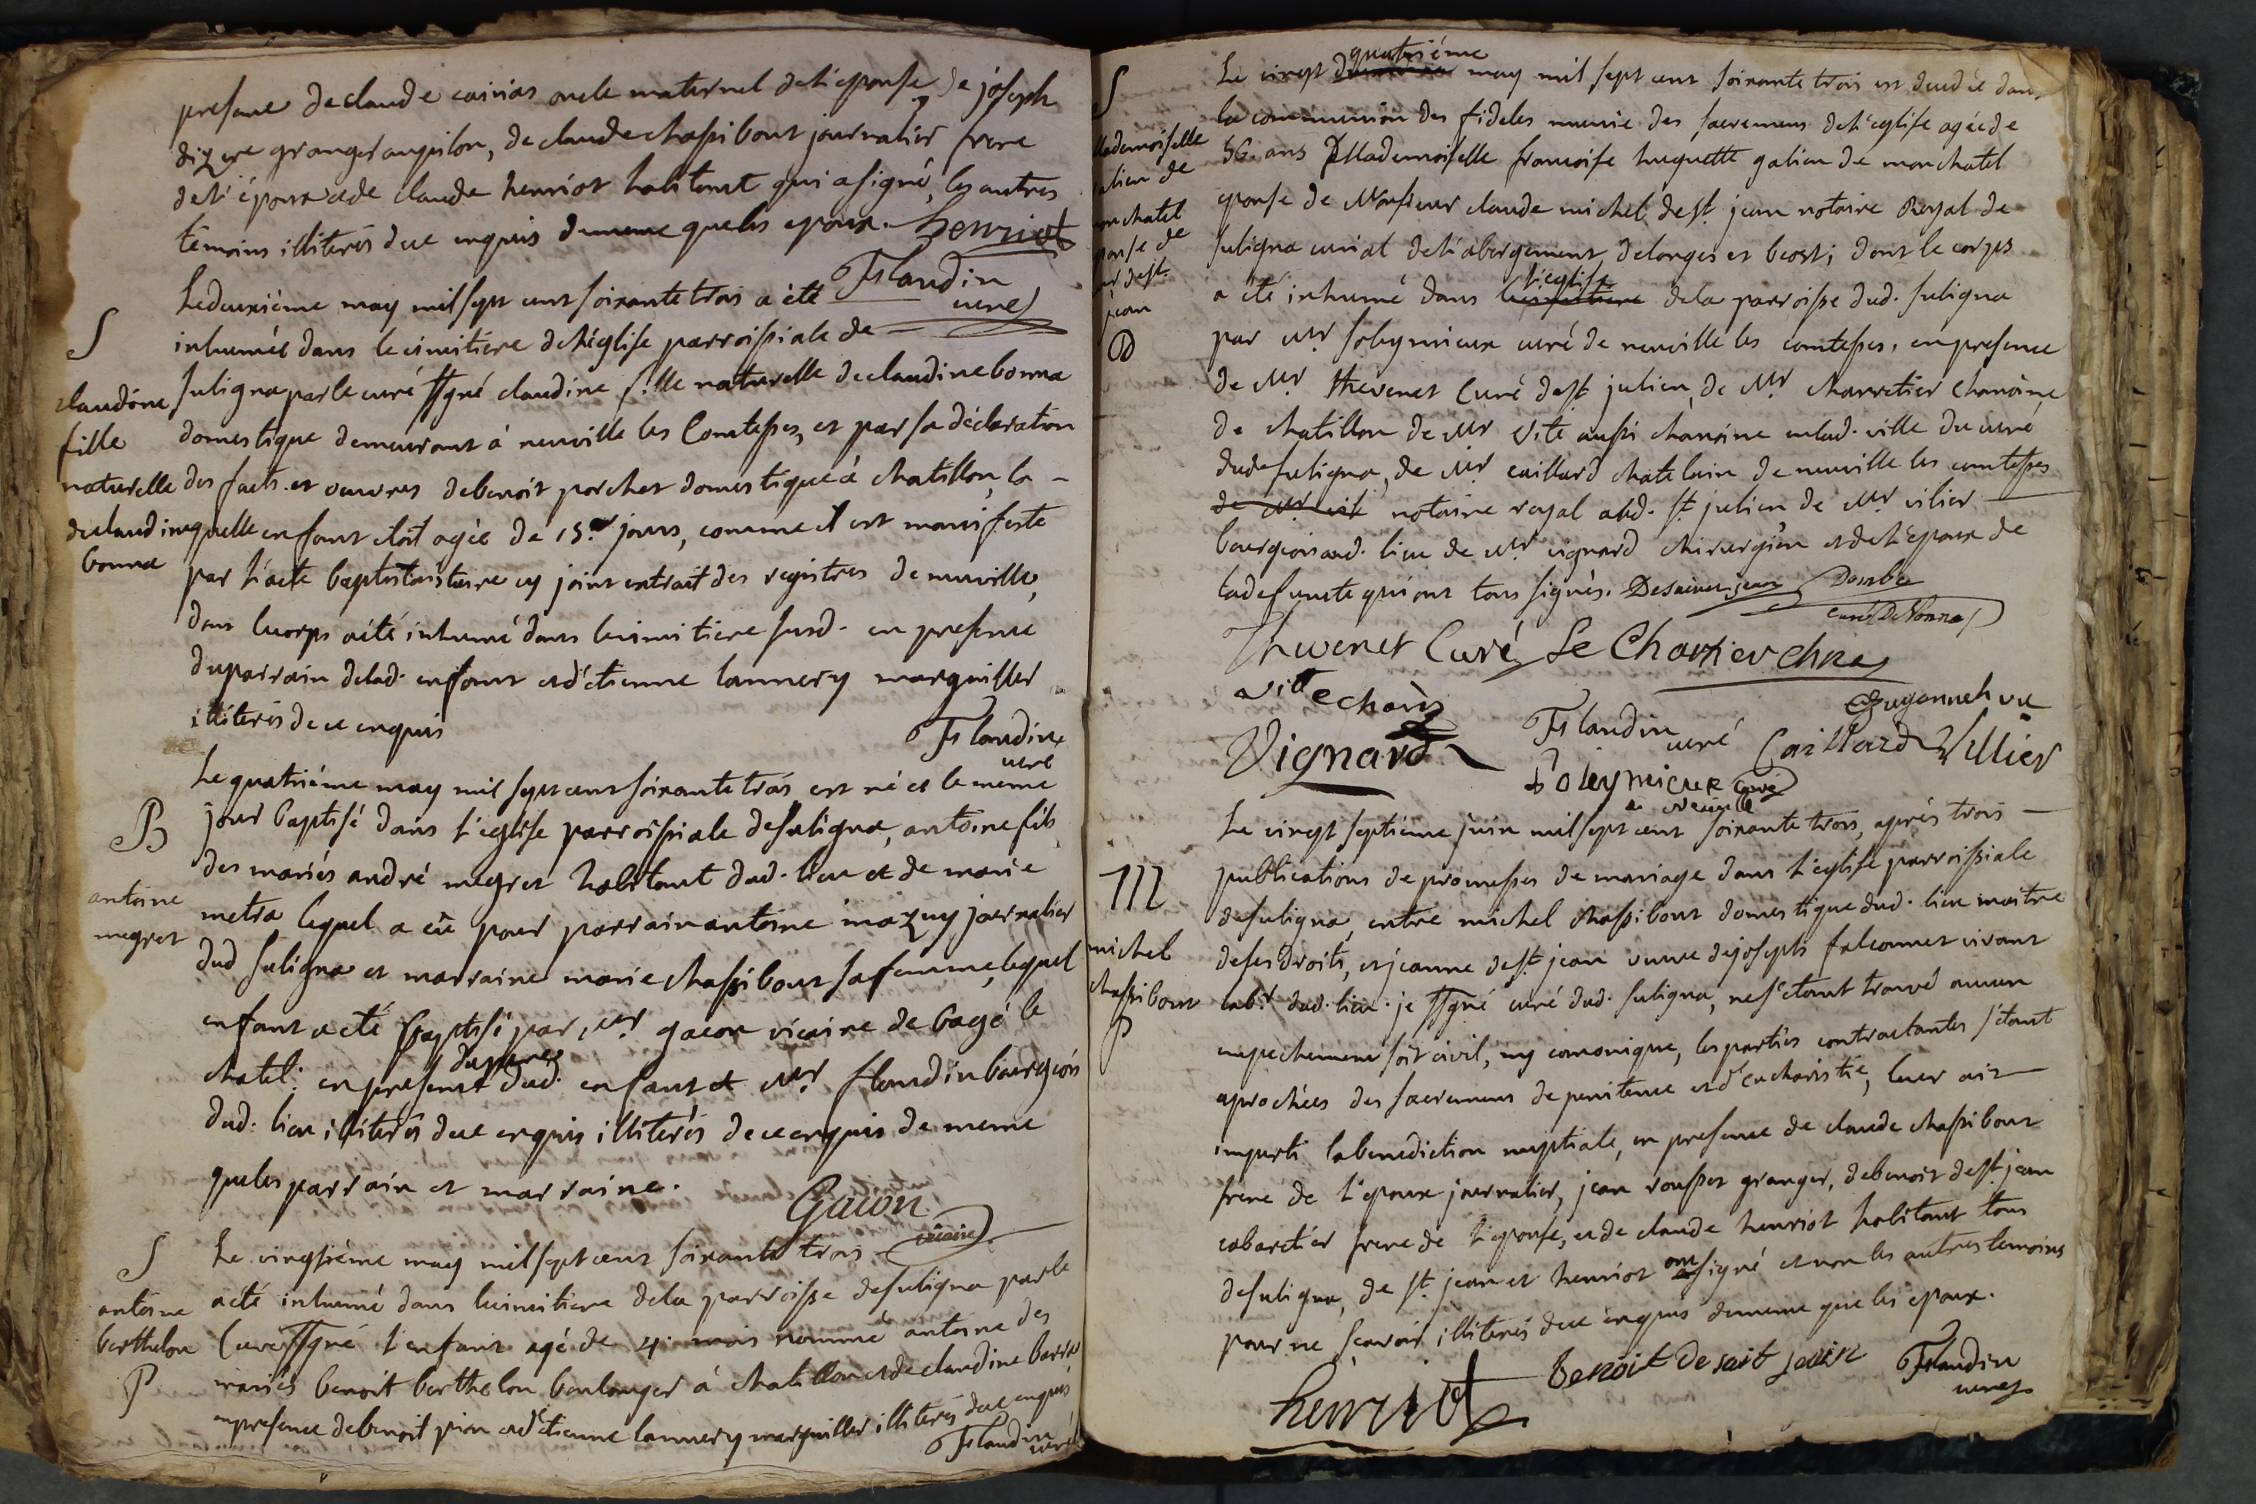 presance de claude cainias oncle maternel de l'eponse, de joseph
dizere granger aupilon, de claude chassibout journalier frere
de l'époux et de claude henriot habitant qui a signé, les autres
témoins illiterés de ce enquis de meme que les epoux. henriot
Flandin
curé
S
claudine
fille
naturelle
de claudine
bonna
Le deuxiéme may mil sept cent soixante trois a été
inhumée dans le cimitiere de l'église parroissiale de
suligna par le curé ssgné claudine fille naturelle de claudine bonna
domestique demeurant à neuville les Comtesses, et par sa déclaration
des faits et oeuvres de benoit porchet domestique à chatillon, la
quelle enfant étoit agée de 15 jours, comme il est manifeste
par l'acte baptistaistaire cy joint extrait des registres de neuville,
dont le corps a été inhumé dans le cimitiere susd. en presence
du parrain de lad. enfant et d'étienne lannery marguiller
illiterés de ce enquis
Flandin
curé
B
antoine
megret
Le quatriéme may mil sept cent soixante trois est né et le meme
jour baptisé dans l'eglise parroissiale de suligna, antoine fils
des mariés andré megret habitant dud. lieu et de marie
metra lequel a eü pour parrain antoine mazuy journalier
dud suligna et marraine marie chassibout sa femme, lequel
enfant a eté baptisé par Mr gacon vicaire de bagé le
chatel: en presence du pere dud. enfant et Mr flandin bourgeois
dud. lieu illiterés de ce enquis illiterés de ce enquis de meme
que les parrain et marraine.
Gacon
vicaire
S
antoine
berthelon
P
Le vingtiéme may mil sept cent soixante trois
a été inhumé dans le cimitiere de la parroisse de suligna par le
Curé ssgné l'enfant agé de 4 mois nommé antoine des
mariés benoit berthelon boulanger à chatillon et de claudine barra
en presence de benoit pion et d'étienne lannery marguiller illiterés de ce enquis
Flandin
curé
S
Mademoiselle
galien de
monchatel
eponse de
mr de st.
jean
Le vingt quatriéme may mil sept cent soixante trois est decedée dans
la communion des fideles munie des sacremens de l'eglise agée de
56 ans Mademoiselle francoise huguette galien de monchatel
eponse de Monsieur claude michel de st. jean notaire Royal de
suligna curial de l'abergement, de longes et beost; dont le corps
a été inhumé dans l'eglise de la parroisse dud. suligna
par Mr soleymieux curé de neuville les comtesses, en presence
de Mr. thevenet Curé de st. julien, de Mr. charretier chanoine
de chatillon de Mr vite aussi chanoine en lad. ville du curé
dud suligna, de Mr caillard chatelain de neuville les comtesses
de Mr notaire royal aud. st. julien de Mr vilier
bourgeois aud. lieu de Mr vignard chirurgien et de l'epoux de
la defuncte qui ont tous signés. Desaint jean Domba
curé De Vonna
Thevenet Curé Le Chartier chne
vitte chanò
Guyonnet vic
Vignard Flandin curé Caillard Villier
Soleymieux curé
de neuville
M
michel
chassibout
P
Le vingt septiéme juin mil sept cent soixante trois, aprés trois
publications de promesses de mariage dans l'eglise parroissiale
de suligna, entre michel chassibout domestique dud. lieu maitre
de ses droits, et jeanne de st. jean veuve de joseph falconnet vivant
labr. dud. lieu. je ssgné curé dud. suligna, ne s'etant trouvé aucun
empechement soit civil, ny canonique, les parties contractantes s'étant
aprochées des sacremens de penitence et d'eucharistie, leur ai
imparti la benediction nuptiale, en presence de claude chassibout
frere de l'epoux journalier, jean rousset granger, de benoit de st. jean
cabaretier frere de l'eponse, et de claude henriot habitant tous
de suligna, de st. jean et henriot ont signé et non les autres temoins
pour ne sçavoir illiterés de ce enquis de meme que les epoux.
henriot Benoit de saint jean Flandin
curé